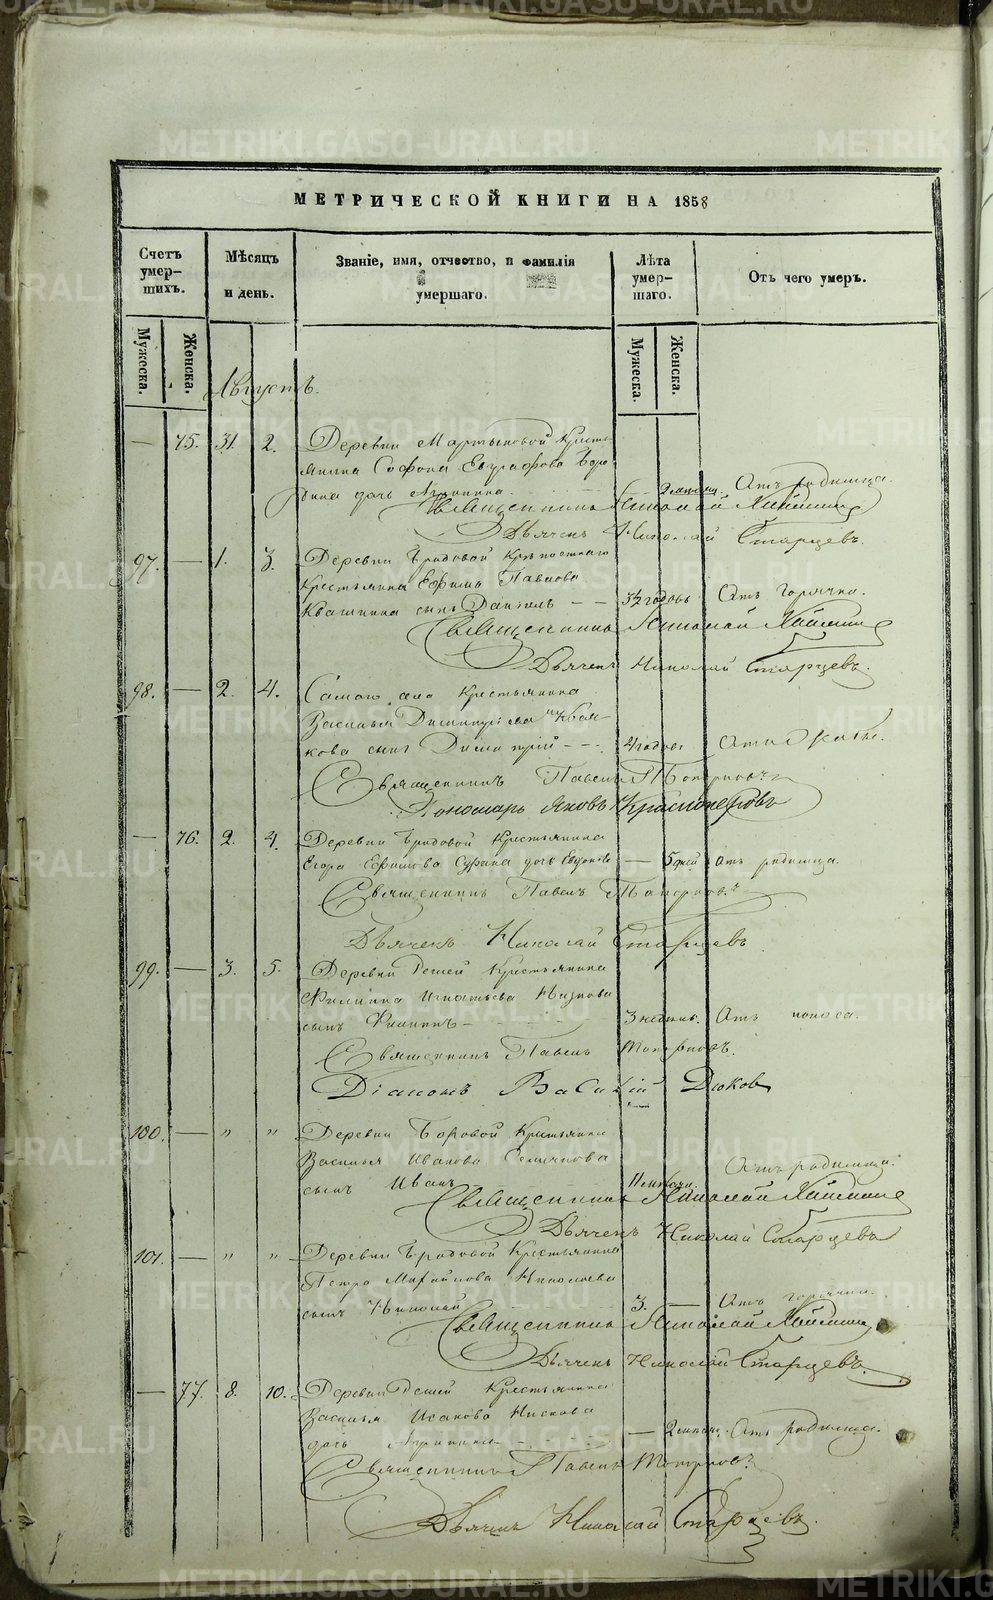 МЕТРИЧЕСКОЙ КНИГИ НА 1858
Счетъ умер-шихъ.
Мѣсяцъ и день.
Званіе, имя, отчество, и фамилія умершаго.
Лѣта умер-шаго.
Отъ чего умеръ.
Мужеска. Женска. Мужеска. Женска.
Августъ.
— 75. 31 2. Деревни Мартыновой Кресть
янина Софона Евграфова
дочь Агрипина. 2 месяц. Отъ родимца.
Священникъ Николай
Дьячекъ Николай Старцевъ.
97. — 1. 3. Деревни Бродовой Крѣпостнаго
Крестьянина Ефима Павлова
Квашнина сынъ Даніилъ — — 3½ годовъ Отъ горячки.
Священникъ Николай
Дьячекъ Николай Старцевъ.
98. — 2. 4. Самого села Крестьянина
Василья Димитріева
кова сынъ Димитрій — — 4 годовъ Отъ
Священникъ Павелъ Топорковъ
Пономарь Яковъ Красноперовъ
— 76. 2. 4. Деревни Бродовой Крестьянина
Егора Ефимова Сурина дочь — 5 дней Отъ родимца.
Священникъ Павелъ Топорковъ
Дьячекъ Николай Старцевъ
99. — 3. 5. Деревни Крестьянина
Филиппа Игнатьева
сынъ Филиппъ — 3 недель. Отъ поноса.
Священникъ Павелъ Топорковъ.
Діаконъ Василій Дюковъ
100. — " " Деревни Боровой Крестьянина
Василья Иванова Семенова
сынъ Иванъ 11 месяц. Отъ родимца.
Священникъ Николай
Дьячекъ Николай Старцевъ
101. — " " Деревни Бродовой Крестьянина
Петра Михайлова Николаева
сынъ Николай 3. — Отъ горячки.
Священникъ Николай
Дьячекъ Николай Старцевъ.
— 77. 8. 10. Деревни Крестьянина
Василья Исакова
дочь Агрипина — — 2 месяц. Отъ родимца.
Священникъ Павелъ Топорковъ
Дьячекъ Николай Старцевъ.
METRIKI.GASO-URAL.RU